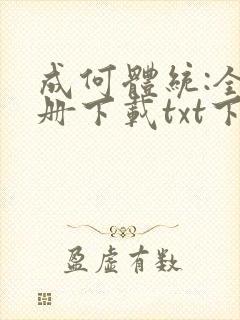 成何體統:全
册下載txt下
盈虛有数